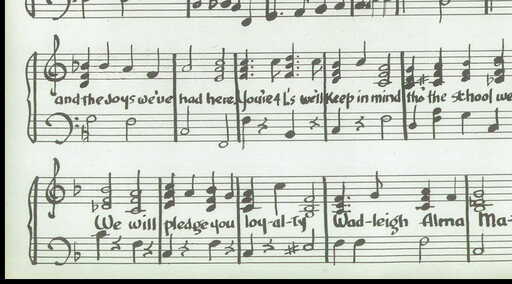 and the Joys we've had here, You're 4 L's we'll Keep in mind tho' the school we
We will pledge you loy-al-ty Wad-leigh Alma Ma-